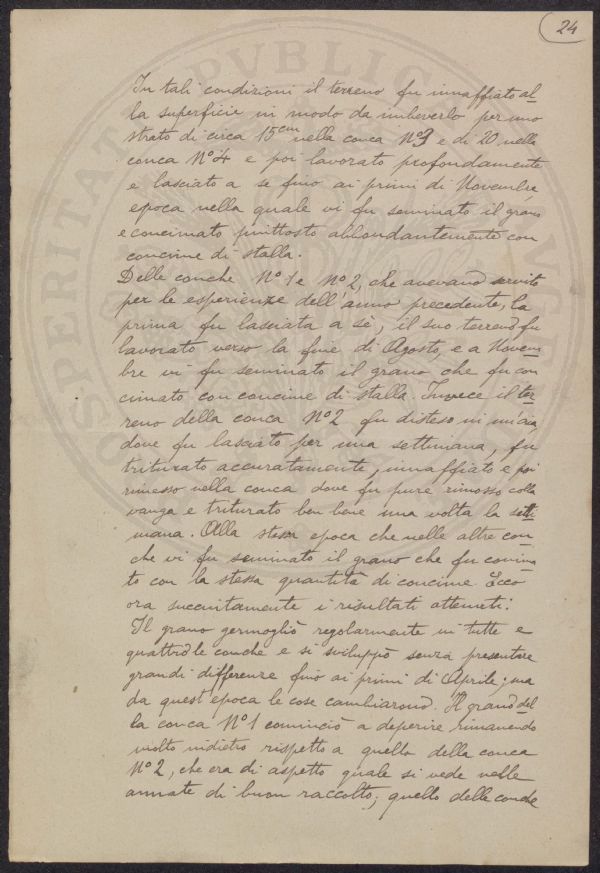 24
In tali condizioni il terreno fu innaffiato al-
la superficie in modo da imbeverlo per uno
strato di circa 15cm nella conca Nº3 e di 20 nella
conca Nº4 e poi lavorato profondamente
e lasciato a se fino ai primi di Novembre,
epoca nella quale vi fu seminato il grano
e concimato piuttosto abbondantemente con
concime di stalla.
Delle conche Nº1 e Nº2, che avevano servito
per le esperienze dell'anno precedente, la
prima fu lasciata a sè, il suo terreno fu
lavorato verso la fine di Agosto, e a Novem-
bre vi fu seminato il grano che fu con
cimato con concime di stalla. Invece il ter-
reno della conca Nº2 fu disteso in un'aia,
dove fu lasciato per una settimana, fu
triturato accuratamente, innaffiato e poi
rimesso nella conca dove fu pure rimosso colla
vanga e triturato ben bene una volta la setti-
mana. Alla stessa epoca che nelle altre con-
che vi fu seminato il grano che fu concima
to con la stessa quantità di concime. Ecco
ora succintamente i risultati ottenuti:
Il grano germogliò regolarmente in tutte e
quattro le conche e si sviluppò senza presentare
grandi differenze fino ai primi di Aprile; ma
da quest'epoca le cose cambiarono. Il grano del-
la conca Nº1 cominciò a deperire rimanendo
molto indietro rispetto a quello della conca
Nº2, che era di aspetto quale si vede nelle
annate di buon raccolto; quello delle conche
PVBLICAE